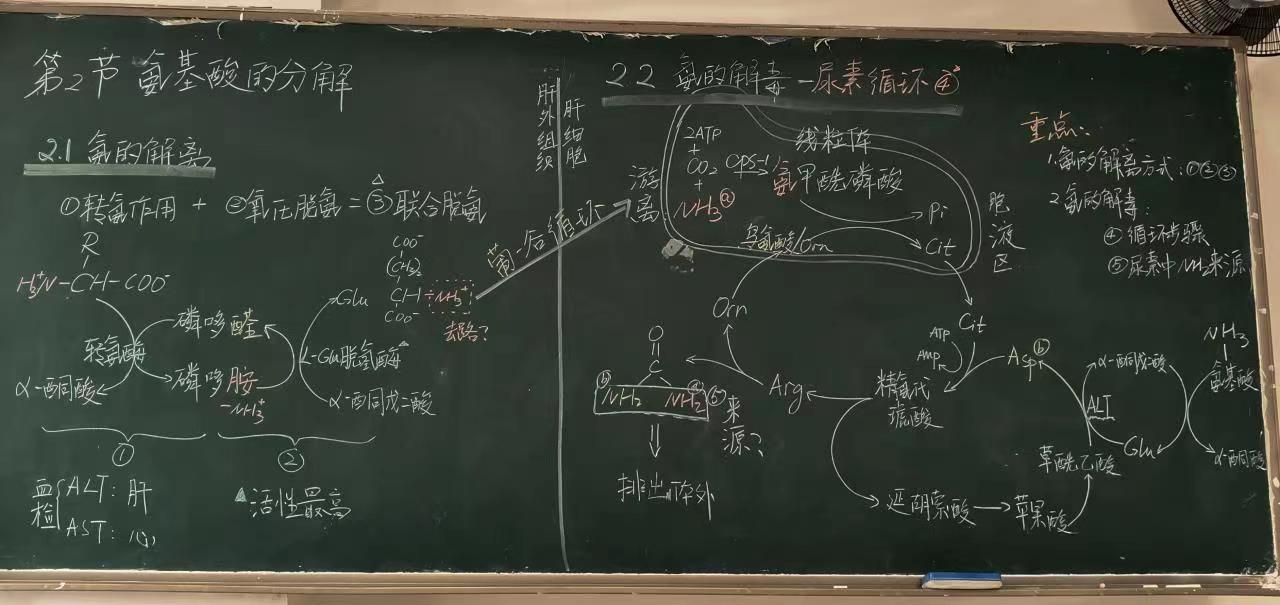 第2节 氨基酸的分解
2.1 氨的解离
①转氨作用 + ②氧化脱氨 = ③联合脱氨
R
H₃⁺N-CH-COO⁻
转氨酶
α-酮酸
磷哆醛
磷哆胺
-NH₃⁺
Glu
L-Glu脱氢酶
α-酮戊二酸
COO⁻
(CH₂)₂
CH-NH₃⁺
COO⁻
去路?
①
②
血检
ALT: 肝
AST: 心
活性最高
肝外组织
肝细胞
葡-谷循环
2.2 氨的解毒-尿素循环④
游离
2ATP
+
CO₂
+
NH₃ⓐ
CPS-1
线粒体
氨甲酰磷酸
Pi
鸟氨酸/Orn
Cit
胞液区
Orn
Cit
ATP
AMP
Aspⓑ
精氨代
琥酸
Arg
O
C
ⓑNH₂
NH₂ⓐ
⑤来源?
排出体外
延胡索酸
苹果酸
草酰乙酸
ALT
α-酮戊二酸
Glu
NH₃
氨基酸
α-酮酸
重点:
1.氨的解离方式:①②③
2.氨的解毒:
④循环步骤
⑤尿素中NH₂来源